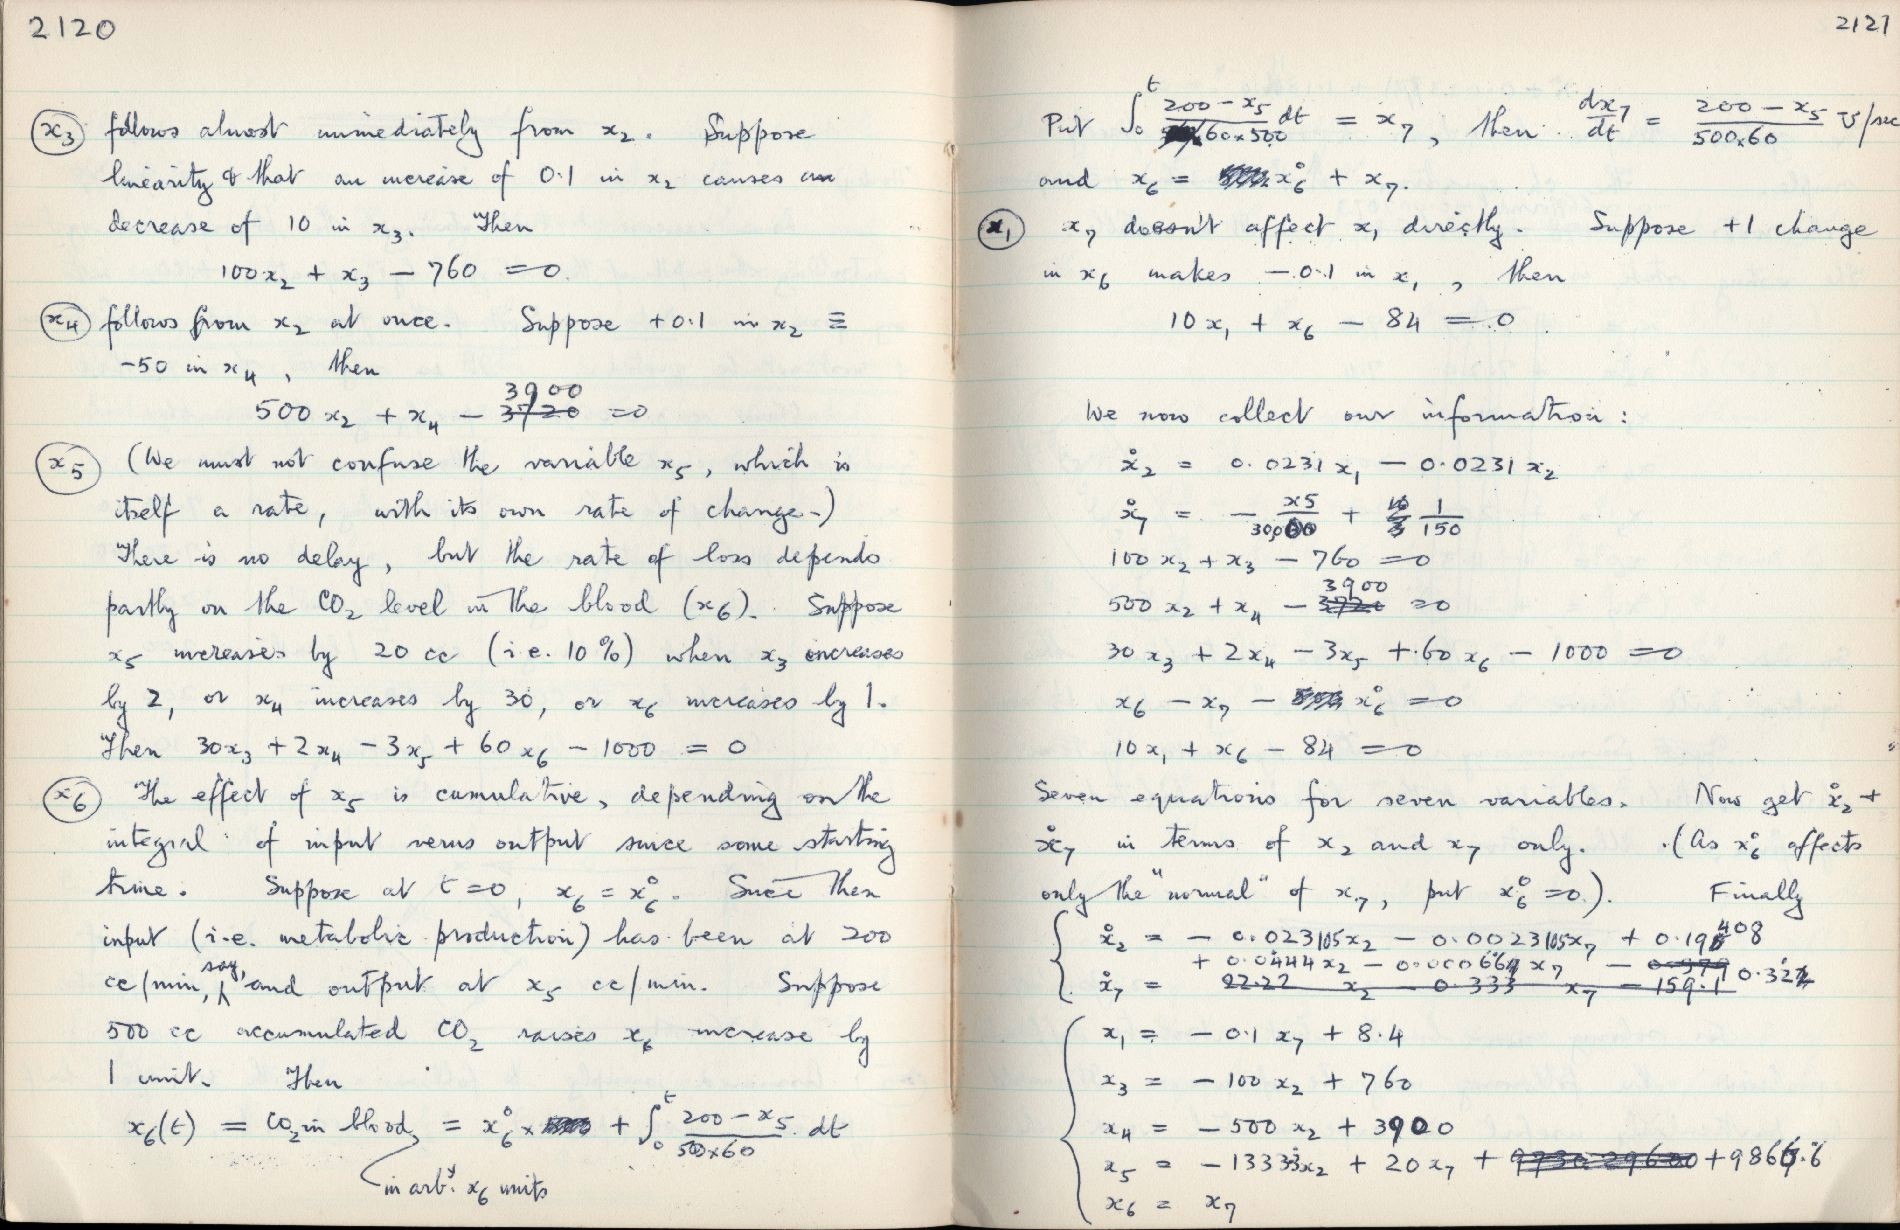 2120
x₃ follows almost immediately from x₂. Suppose
linearity & that an increase of 0.1 in x₂ causes a
decrease of 10 in x₃. Then
100x₂ + x₃ − 760 = 0.
x₄ follows from x₂ at once. Suppose +0.1 in x₂ ≡
−50 in x₄, then
3900
500x₂ + x₄ − 3720 = 0
x₅ (We must not confuse the variable x₅, which is
itself a rate, with its own rate of change.)
There is no delay, but the rate of loss depends
partly on the CO₂ level in the blood (x₆). Suppose
x₅ increases by 20 cc (i.e. 10%) when x₃ increases
by 2, or x₄ increases by 30, or x₆ increases by 1.
Then 30x₃ + 2x₄ − 3x₅ + 60x₆ − 1000 = 0
x₆ The effect of x₅ is cumulative, depending on the
integral of input versus output since some starting
time. Suppose at t = 0, x₆ = x₆°. Since then
input (i.e. metabolic production) has been at 200
cc/min, say, and output at x₅ cc/min. Suppose
500 cc accumulated CO₂ raises x₆ increase by
1 unit. Then
x₆(t) = CO₂ in blood = x₆° + ∫₀ᵗ (200 − x₅)/(500×60) dt
in arbʸ. x₆ units
2121
Put ∫₀ᵗ (200 − x₅)/(60×500) dt = x₇, then dx₇/dt = (200 − x₅)/(500×60) U/sec
and x₆ = x₆° + x₇.
x₁ x₇ doesn't affect x₁ directly. Suppose +1 change
in x₆ makes −0.1 in x₁, then
10x₁ + x₆ − 84 = 0
We now collect our information:
x̊₂ = 0.0231x₁ − 0.0231x₂
x̊₇ = − x₅/30,000 + 1/150
100x₂ + x₃ − 760 = 0
3900
500x₂ + x₄ − 3720 = 0
30x₃ + 2x₄ − 3x₅ + 60x₆ − 1000 = 0
x₆ − x₇ − x₆° = 0
10x₁ + x₆ − 84 = 0
Seven equations for seven variables. Now get x̊₂ +
x̊₇ in terms of x₂ and x₇ only. (As x₆° affects
only the "normal" of x₇, put x₆° = 0.). Finally
x̊₂ = − 0.023105x₂ − 0.0023105x₇ + 0.19408
+ 0.0444x₂ − 0.000667x₇ − 0.379 0.322
x̊₇ = 22.22 x₂ − 0.333 x₇ − 159.1
x₁ = − 0.1 x₇ + 8.4
x₃ = − 100 x₂ + 760
x₄ = − 500 x₂ + 3900
x₅ = − 1333.3x₂ + 20x₇ + 9866.6
x₆ = x₇